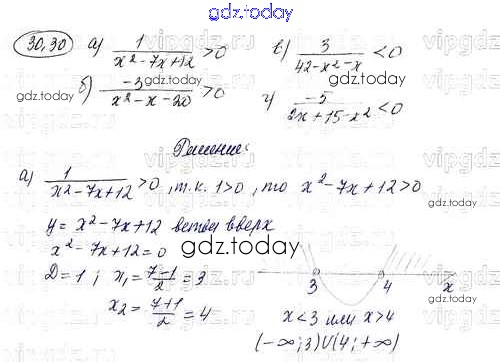 gdz.today
30.30 а) 1/(x²-7x+12) > 0 в) 3/(42-x²-x) < 0
gdz.today
б) -3/(x²-x-20) > 0 г) -5/(2x+15-x²) < 0
gdz.today
gdz.today
Решение:
а) 1/(x²-7x+12) > 0, т.к. 1>0, то x²-7x+12>0
y = x²-7x+12 ветви вверх
x²-7x+12=0
gdz.today
D=1; x₁ = (7-1)/2 = 3
3 4 x
x₂ = (7+1)/2 = 4
x<3 или x>4
(-∞;3)∪(4;+∞)
gdz.today